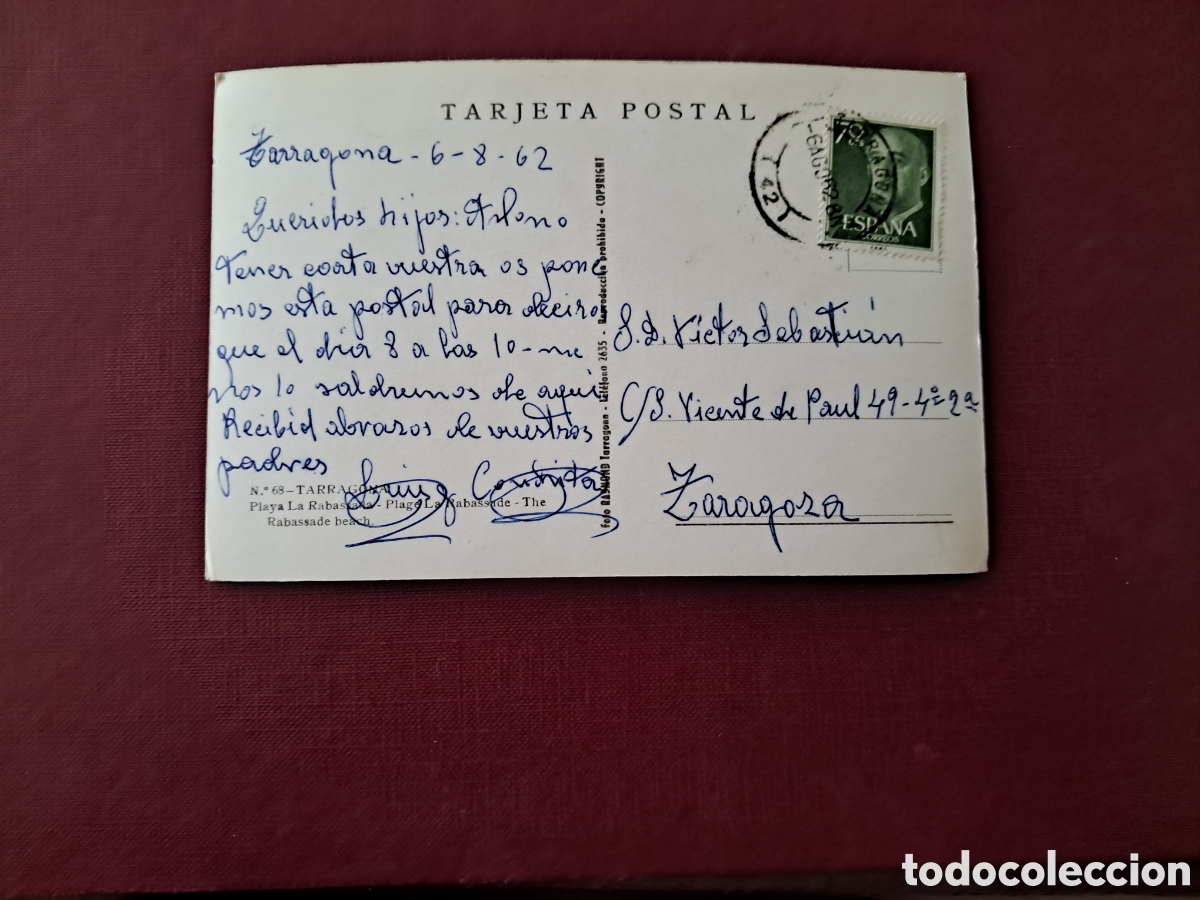 TARJETA POSTAL
Tarragona - 6-8-62
Queridos hijos: Al no
tener carta vuestra os pone
mos esta postal para deciros
que el dia 8 a las 10-me
nos 10 saldremos de aqui
Recibid abrazos de vuestros
padres
Luis y Conchita
N.º 68 - TARRAGONA
Playa La Rabassada - Plage La Rabassade - The
Rabassade beach.
Foto RAYMOND Tarragona - Teléfono 2635 - Reproducción prohibida - COPYRIGHT
TARRAGONA
-6 AGO 62
T 42
70
ESPAÑA
CORREOS
S.D. Víctor Sebastián
C/S. Vicente de Paul 49-4º-2ª
Zaragoza
todocoleccion